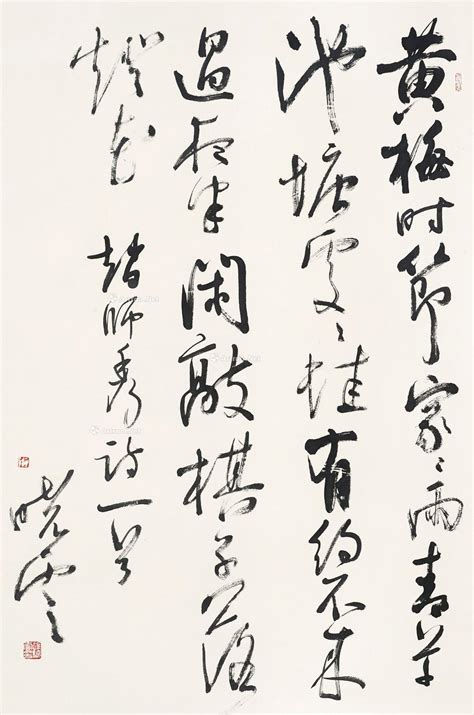 黄梅时节家々雨青草
池塘处々蛙有约不来
过夜半闲敲棋子落
灯花 赵师秀诗一首
晓云